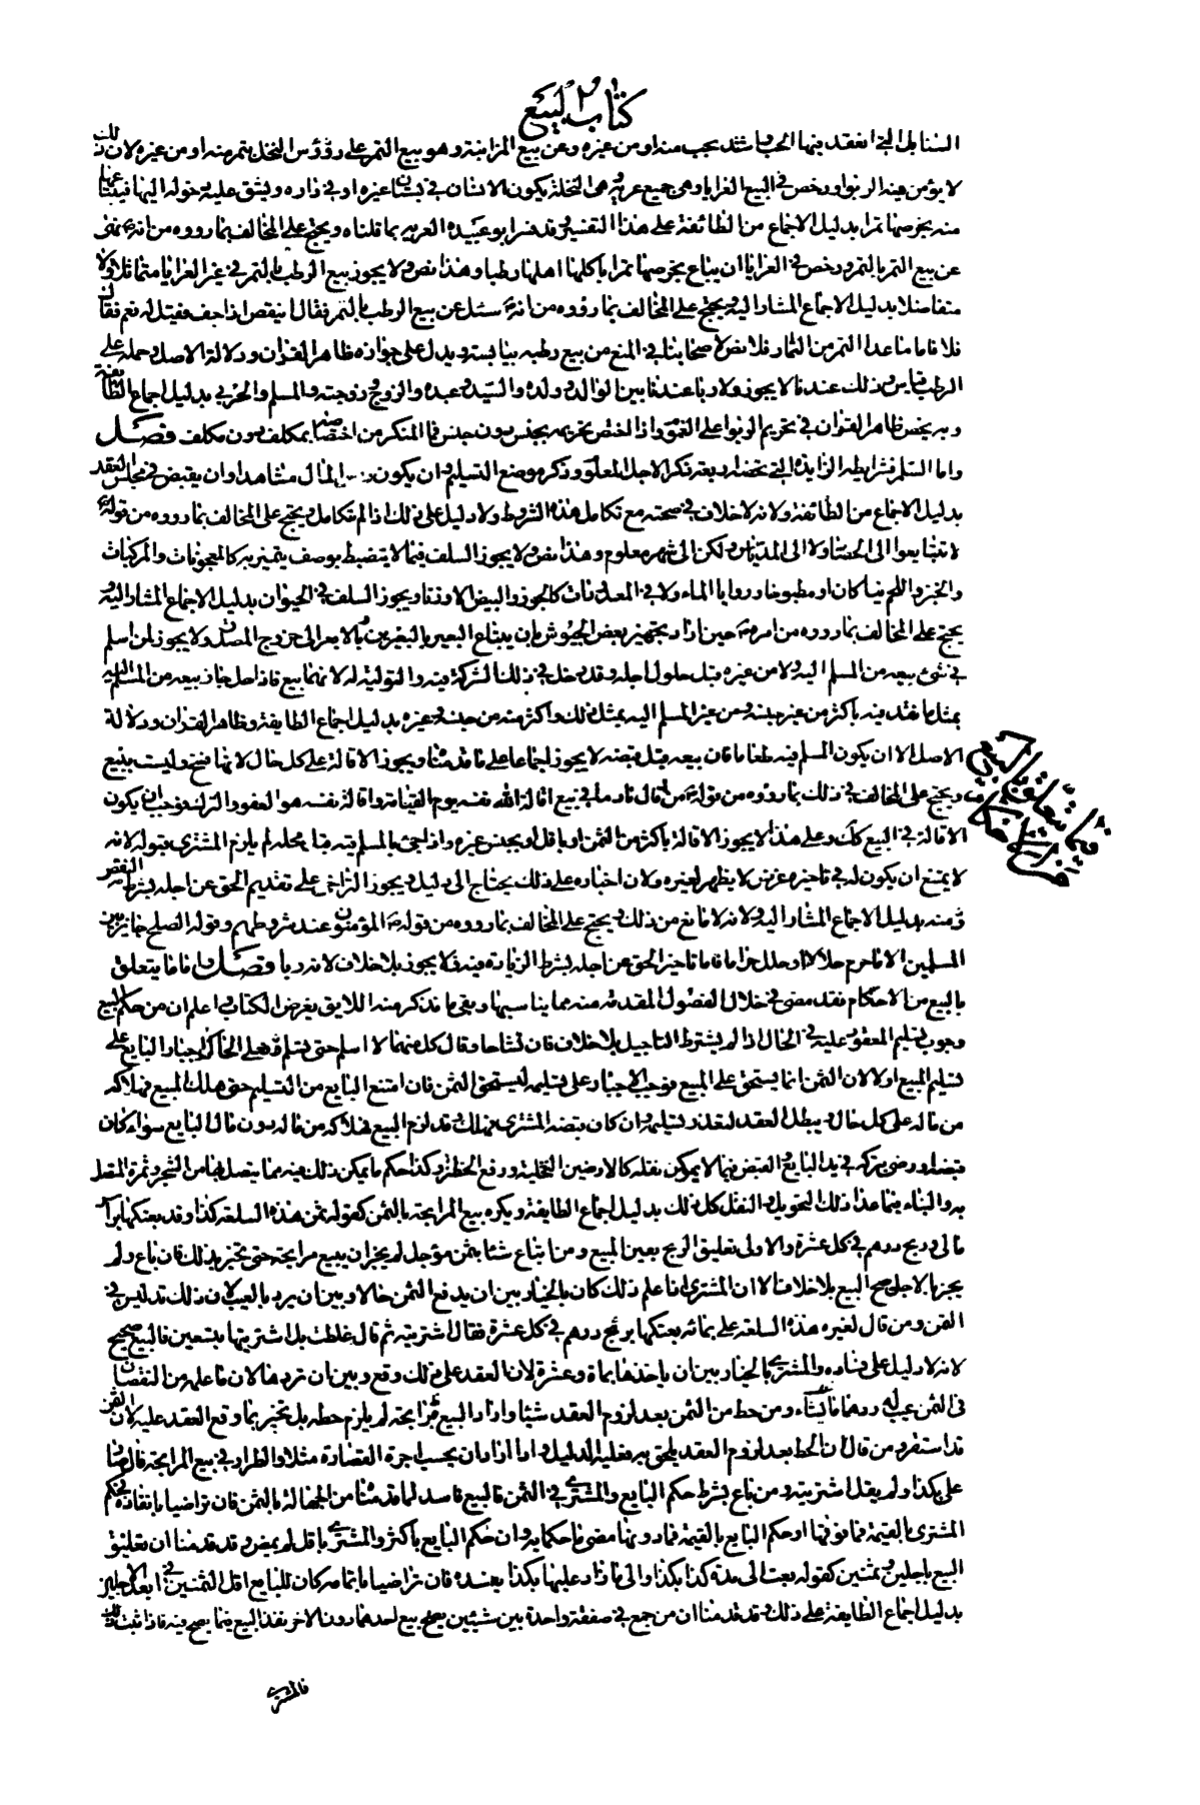 كتاب البيع
السنابل التي انعقد فيها الحب واشتد بحب منه او من غيره وعن بيع المزابنة وهو بيع التمر على رؤوس النخل بتمر منه او من غيره لان ذلك
لا يؤمن فيه الربوا ورخص في البيع العرايا وهي جمع عرية وهي النخلة يكون لانسان في بستان غيره او في داره ويشق عليه دخوله اليها فيبتاعها
منه بخرصها تمرا بدليل الاجماع من الطائفة على هذا التفسير وقد فسر ابو عبيدة العرية بما قلناه ويحتج على المخالف بما رووه من انه نهى
عن بيع التمر بالتمر ورخص في العرايا ان يباع بخرصها تمرا ياكلها اهلها رطبا وهذا نص ولا يجوز بيع الرطب بالتمر في غير العرايا متماثلا ولا
متفاضلا بدليل الاجماع المشار اليه ويحتج على المخالف بما رووه من انه سئل عن بيع الرطب بالتمر فقال اينقص اذا جف فقيل له نعم فقال
فلا فاما ما عدا التمر من الثمار فلا نص لاصحابنا في المنع من بيع رطبه بيابسه ويدل على جوازه ظاهر القران ودلالة الاصل وحمله على
الرطب قياس وذلك عندنا لا يجوز ولا ربا عندنا بين الوالد وولده والسيد وعبده والزوج وزوجته والمسلم والحربي بدليل اجماع الطائفة
وبه يخص ظاهر القران في تحريم الربوا على العموم واذا اختص تحريمه بجنس دون جنس فما المنكر من اختصاصه بمكلف دون مكلف فصل
واما السلم فشرايطه الزايدة التي تخصه اربعة ذكر الاجل المعلوم وذكر موضع التسليم وان يكون راس المال مشاهدا وان يقبض في مجلس العقد
بدليل الاجماع من الطائفة ولانه لا خلاف في صحته مع تكامل هذه الشروط ولا دليل على ذلك اذا لم تتكامل ويحتج على المخالف بما رووه من قوله
لا تتبايعوا الى الحصاد ولا الى الدياس ولكن الى شهر معلوم وهذا نص ولا يجوز السلف فيما لا ينضبط بوصف يتميز به كالمعجونات والمركبات
والخبز واللحم نيا كان او مطبوخا وروايا الماء ولا في المعدودات كالجوز والبيض الا وزنا ويجوز السلف في الحيوان بدليل الاجماع المشار اليه و
يحتج على المخالف بما رووه من امره حين اراد تجهيز بعض الجيوش بان يبتاع البعير بالبعيرين وبالابعرة الى خروج المصدق ولا يجوز لمن اسلم
في شيء بيعه من المسلم اليه ولا من غيره قبل حلول اجله وقد دخل في ذلك الشركة فيه والتولية له لانهما بيع فاذا حل جاز بيعه من المسلم اليه
بمثل ما نقد فيه وباكثر من غير جنسه ومن غير المسلم اليه بمثل ذلك واكثر منه من جنسه وغيره بدليل اجماع الطايفة وظاهر القران ودلالة
الاصل الا ان يكون المسلم فيه طعاما فان بيعه قبل قبضه لا يجوز اجماعا على ما قدمناه ويجوز الاقالة على كل حال لانها فسخ وليست ببيع
ويحتج على المخالف في ذلك بما رووه من قوله من اقال نادما في بيع اقاله الله نفسه يوم القيامة واقالة نفسه هو العفو والترك فوجب ان يكون
الاقالة في البيع كذلك وعلى هذا لا يجوز الاقالة باكثر من الثمن او باقل او بجنس غيره واذا جيء بالمسلم فيه قبل محله لم يلزم المشتري قبوله لانه
لا يمتنع ان يكون له في تاخيره غرض لا يظهر لغيره ولان اجباره على ذلك يحتاج الى دليل ويجوز التراضي على تقديم الحق عن اجله بشرط النقص
منه بدليل الاجماع المشار اليه ولانه لا مانع من ذلك ويحتج على المخالف بما رووه من قوله المؤمنون عند شروطهم وقوله الصلح جايز بين
المسلمين الا ما حرم حلالا او حلل حراما فاما تاخير الحق عن اجله بشرط الزيادة فيه فلا يجوز بلا خلاف لانه ربا فصل واما ما يتعلق
بالبيع من الاحكام فقد مضى في خلال الفصول المقدمة منه مما يناسبها وبقي ما نذكر منه اللايق بغرض الكتاب اعلم ان من حكم البيع
وجوب تسليم المعقود عليه في الحال اذا لم يشترط التاجيل بلا خلاف فان تشاحا وقال كل منهما لا اسلم حتى تسلم فعلى الحاكم اجبار البايع على
تسليم المبيع اولا لان الثمن انما يستحق على المبيع فوجب الاجبار على تسليمه ليستحق الثمن فان امتنع البايع من التسليم حتى هلك المبيع فهلاكه
من ماله على كل حال ويبطل العقد لتعذر تسليمه وان كان قبضه المشتري فهلك بعد لزوم البيع فهلاكه من ماله دون مال البايع سواء كان
قبضه ورضي بتركه في يد البايع والقبض فيما لا يمكن نقله كالارضين التخلية ورفع الحظر وكذا حكم ما يمكن ذلك فيه مما يتصل بها من الشجر وثمره المتصل
به والبناء وفيما عدا ذلك التحويل والنقل كل ذلك بدليل اجماع الطايفة ويكره بيع المرابحة بالثمن كقوله ثمن هذه السلعة كذا وقد بعتكها براس
مالي وربح درهم في كل عشرة والاولى تعليق الربح بعين المبيع ومن ابتاع شيئا بثمن مؤجل لم يجز ان يبيعه مرابحة حتى يخبر بذلك فان باع ولم
يخبر بالاجل صح البيع بلا خلاف الا ان المشتري اذا علم ذلك كان بالخيار بين ان يدفع الثمن حالا وبين ان يرد بالعيب لان ذلك تدليس في
الثمن ومن قال لغيره هذه السلعة علي بمائة بعتكها بربح درهم في كل عشرة فقال اشتريته ثم قال غلطت بل اشتريتها بتسعين فالبيع صحيح
لانه لا دليل على فساده والمشتري بالخيار بين ان ياخذها بماة وعشرة لان العقد على ذلك وقع وبين ان يردها لان ما علمه من النقصان
في الثمن عيب له ردها به ان شاء ومن حط من الثمن بعد لزوم العقد شيئا واراد البيع مرابحة لم يلزم حطه بل يخبر بما وقع العقد عليه لان الثمن
قد استقر ومن قال ان الحط بعد لزوم العقد يلحق به فعليه الدليل واذا اراد ان يحسب اجرة القصارة مثلا والطراز في بيع المرابحة قال هذا
علي بكذا ولم يقل اشتريته ومن باع بشرط حكم البايع او المشتري في الثمن فالبيع فاسد لما قدمناه من الجهالة بالثمن فان تراضيا بانفاذه بحكم
المشتري بالقيمة فما فوقها او حكم البايع بالقيمة فما دونها مضى ما حكما به وان حكم البايع باكثر والمشتري باقل لم يمض وقد قدمنا ان تعليق
البيع باجلين وثمنين كقوله بعت الى مدة كذا بكذا والى ما زاد عليها بكذا يفسده فان تراضيا بانفاذه كان للبايع اقل الثمنين في ابعد الاجلين
بدليل اجماع الطايفة على ذلك وقد قدمنا ان من جمع في صفقة واحدة بين شيئين يصح بيع احدهما دون الاخر نفذ البيع فيما يصح فيه فاذا ثبت ذلك
فيما يتعلق بالبيع
من الاحكام
فالمشتري